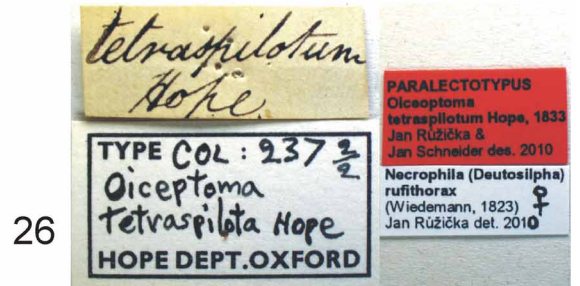 tetraspilotum
Hope.
TYPE COL : 237 2/2
Oiceptoma
tetraspilota Hope
HOPE DEPT.OXFORD
PARALECTOTYPUS
Oiceoptoma
tetraspilotum Hope, 1833
Jan Růžička &
Jan Schneider des. 2010
Necrophila (Deutosilpha)
rufithorax ♀
(Wiedemann, 1823)
Jan Růžička det. 2010
26